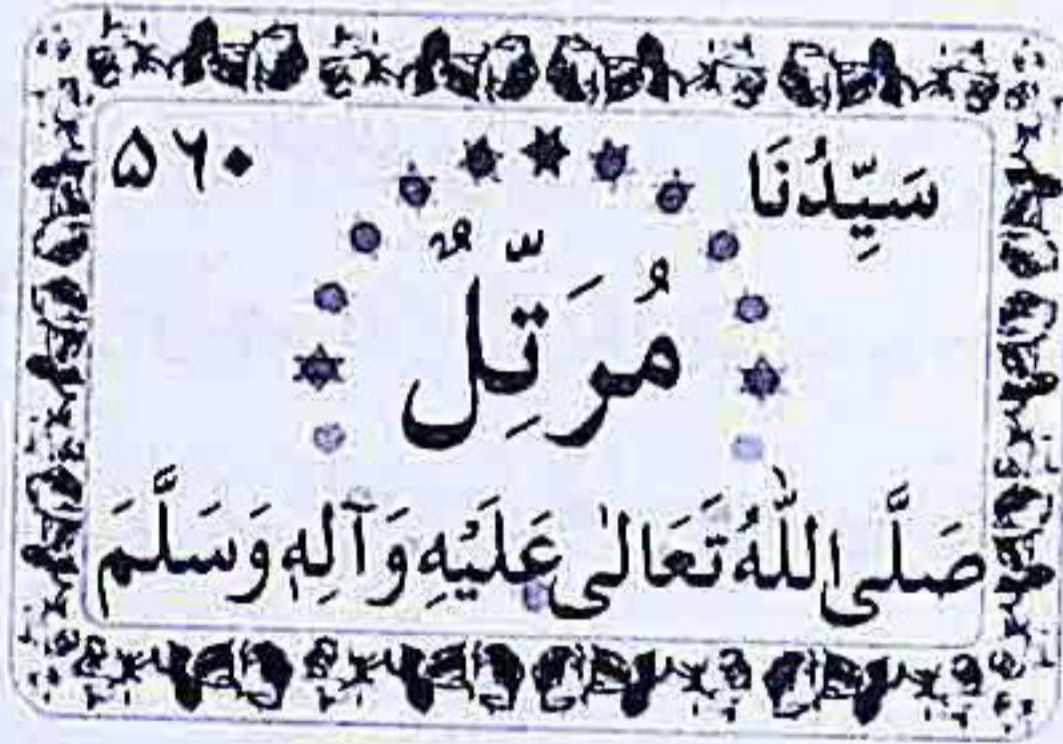 سَيِّدُنَا ۵۶۰
مُرَتِّلٌ
صَلَّی اللّٰهُ تَعَالٰی عَلَیْهِ وَآلِهٖ وَسَلَّمَ